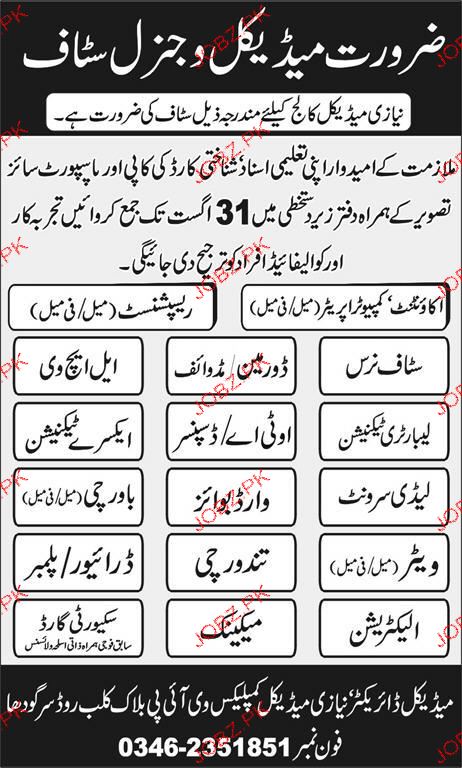 ضرورت میڈیکل و جنرل سٹاف
نیازی میڈیکل کالج کیلئے مندرجہ ذیل سٹاف کی ضرورت ہے۔
ملازمت کے امیدوار اپنی تعلیمی اسناد، شناختی کارڈ کی کاپی اور پاسپورٹ سائز
تصویر کے ہمراہ دفتر زیر دستخطی میں 31 اگست تک جمع کروائیں تجربہ کار
اور کوالیفائیڈ افراد کو ترجیح دی جائیگی۔
اکاؤنٹنٹ، کمپیوٹر اپریٹر (میل/فی میل) ریسپشنسٹ (میل/فی میل)
سٹاف نرس ڈورمین/مڈوائف ایل ایچ وی
لیبارٹری ٹیکنیشن اوٹی اے/ڈسپنسر ایکسرے ٹیکنیشن
لیڈی سرونٹ وارڈ بوائز باورچی (میل/فی میل)
ویٹر (میل/فی میل) تندورچی ڈرائیور/پلمبر
الیکٹریشن میکینک سکیورٹی گارڈ
سابق فوجی ہمراہ ذاتی اسلحہ ولائسنس
میڈیکل ڈائریکٹر، نیازی میڈیکل کمپلیکس وی آئی پی بلاک کلب روڈ سرگودھا
فون نمبر 0346-2351851
JOBZ.PK